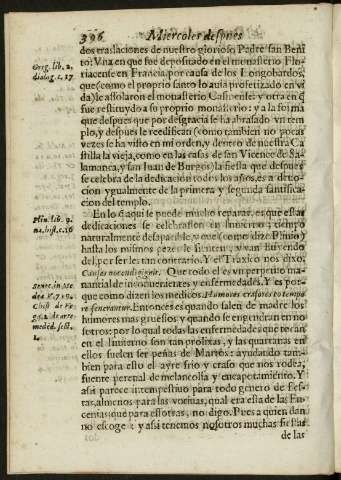 396 Miercoles despues
dos traslaciones de nuestro glorioso Padre san Beni
to: Vna en que fue depositado en el monasterio Flo-
riacense en Francia, por causa de los Longobardos,
que (como el proprio santo lo auia profetizado en vi
da) le assolaron el monasterio Casinense: y otra en q̃
fue restituydo a su proprio monasterio: y a la forma
que despues que por desgracia se ha abrasado vn tem
plo, y despues le reedifican (como tambien no pocas
vezes se ha visto en mi orden, y dentro de nuestra Ca
stilla la vieja, como en las casas de san Vicente de Sa-
lamanca, y san Iuan de Burgos) la fiesta que despues
se celebra de la dedicacion todos los años, es a deuo-
cion ygualmente de la primera y segunda santifica-
cion del templo.
En lo q̃ aqui se puede mucho reparar, es que estas
dedicaciones se celebrassen en Inuierno; tiempo
naturalmente desapacible, y que (como dize Plinio)
hasta los mismos pezes le sienten, y van huyendo
del, por serles tan contrario. Y el Tragico nos dixo.
Que todo el es vn perpetuo ma-
nantial de inconuenientes y enfermedades. Y es por-
que como dizen los medicos: Humores crassiores eo tempo
re generantur. Entonces es quando salen de madre los
humores mas gruessos y quando se engendran en no
sotros: por lo qual todas las enfermedades que tocan
en el Inuierno son tan prolixas, y las quartanas en
ellos suelen ser peñas de Martos: ayudando tam-
bien para esto el ayre frio y crasso que nos rodea,
fuente perenal de melancolia y encapotamiento. Y
assi parece intempestiuo para todo genero de fies-
tas, almenos para las votiuas, qual era esta de las En-
cenias: que para essotras, no digo. Pues a quien dan
no escoge: y assi tenemos nosotros muchas fiestas
de las
Greg. lib. 2.
dialog. c. 17.
Plin. lib. 9.
na. hist. c. 16